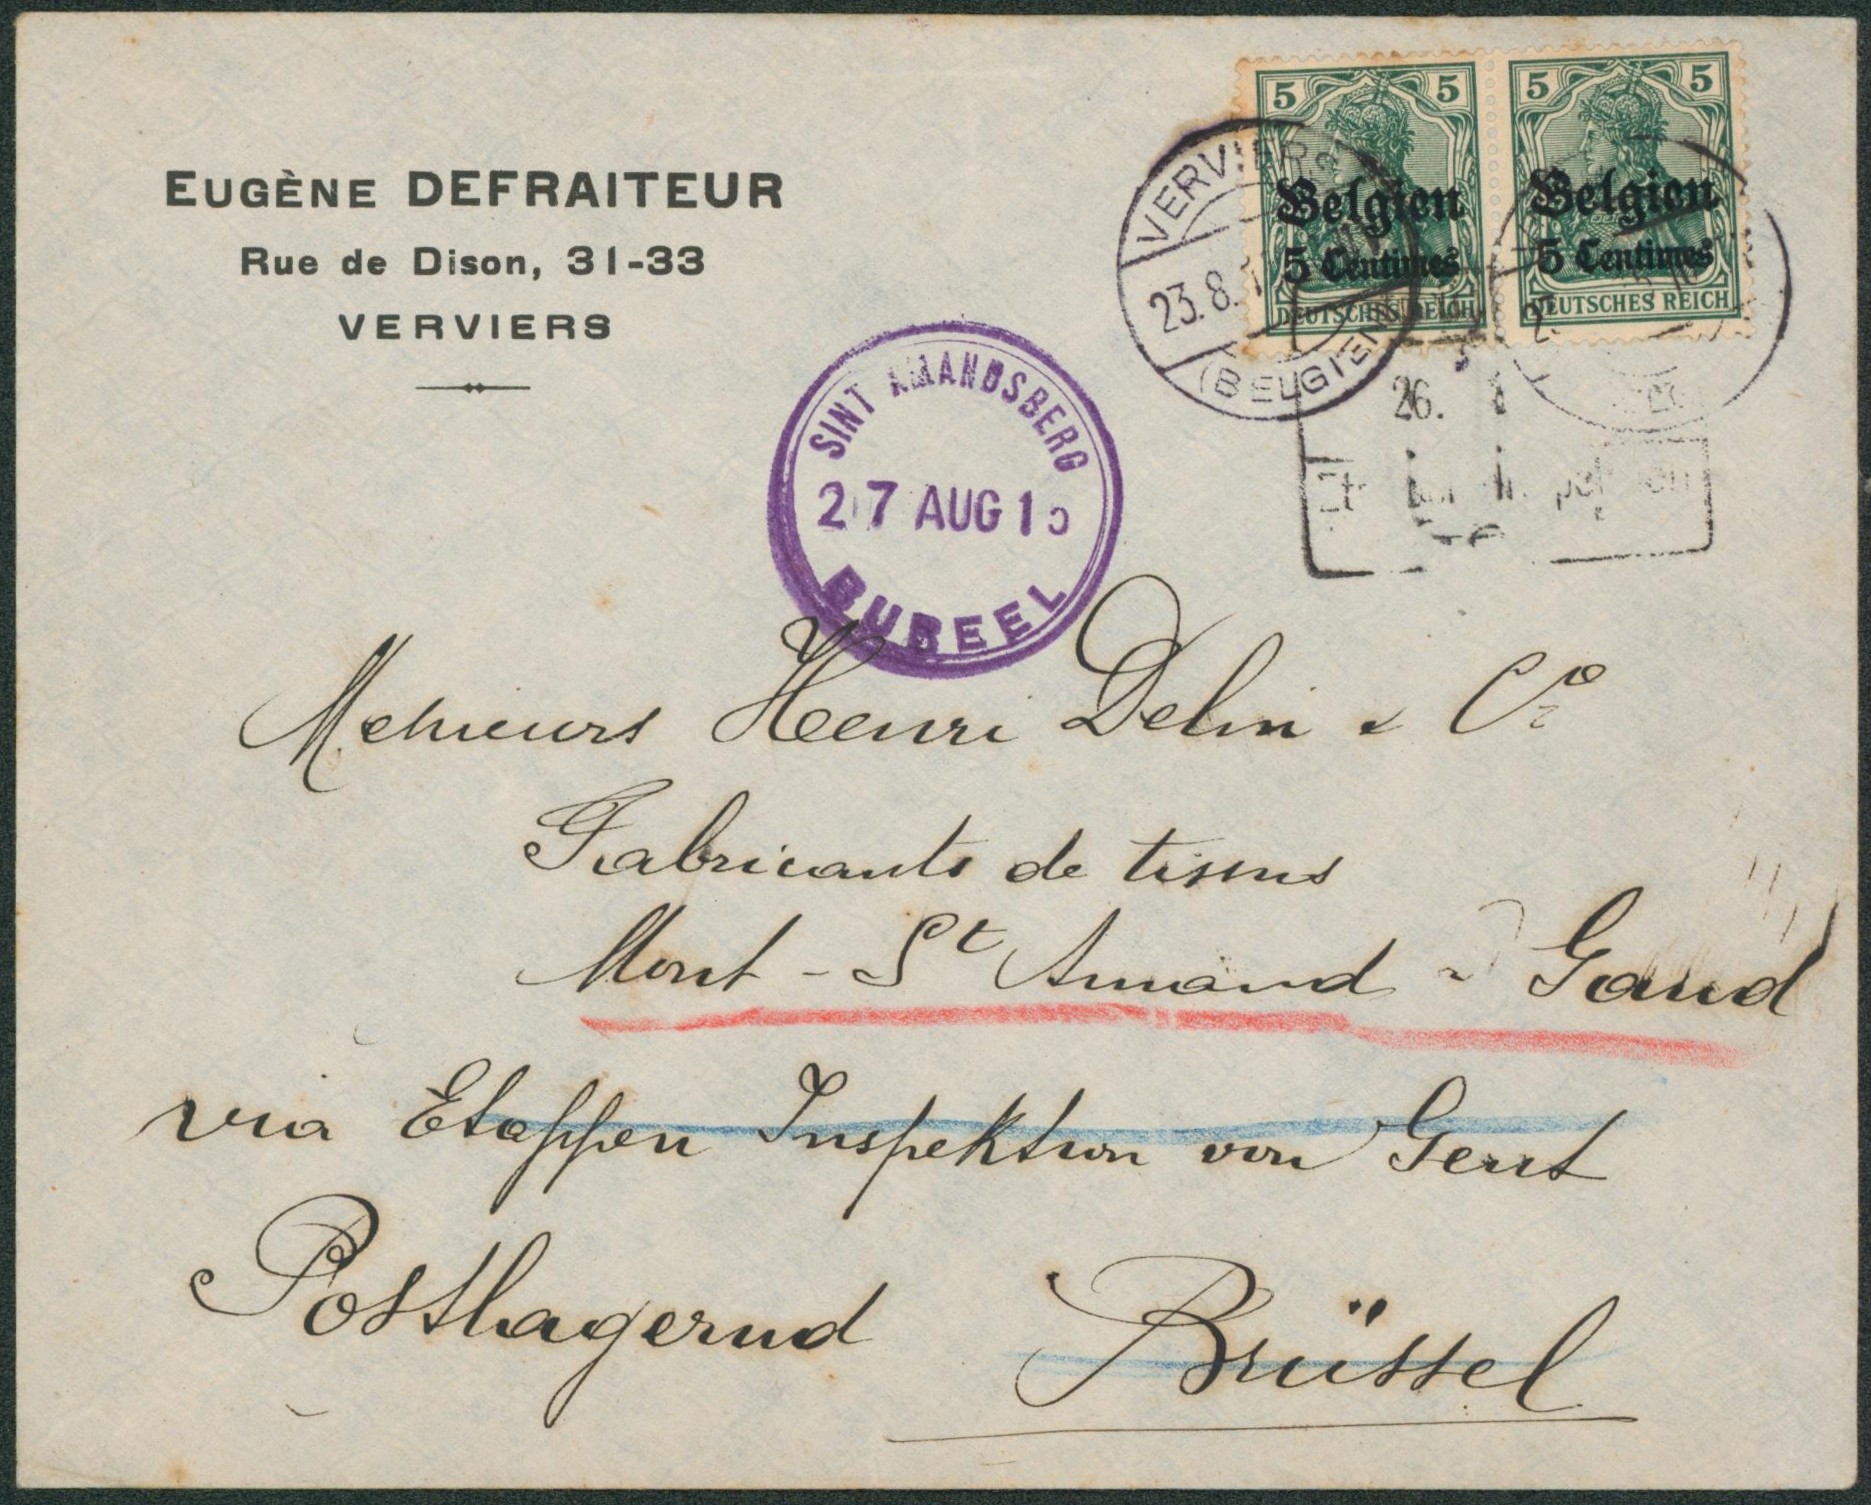 EUGÈNE DEFRAITEUR
Rue de Dison, 31-33
VERVIERS
5 5
Belgien
5 Centimes
DEUTSCHES REICH
5 5
Belgien
5 Centimes
DEUTSCHES REICH
VERVIER
23.8.
(BELGIEN
26.
SINT AMANDSBERG
27 AUG 15
BUREEL
Messieurs Henri Delin & Cie
Fabricants de tissus
Mont - St Amand - Gand
via Etappen Inspektion von Gent
Postlagernd Brüssel